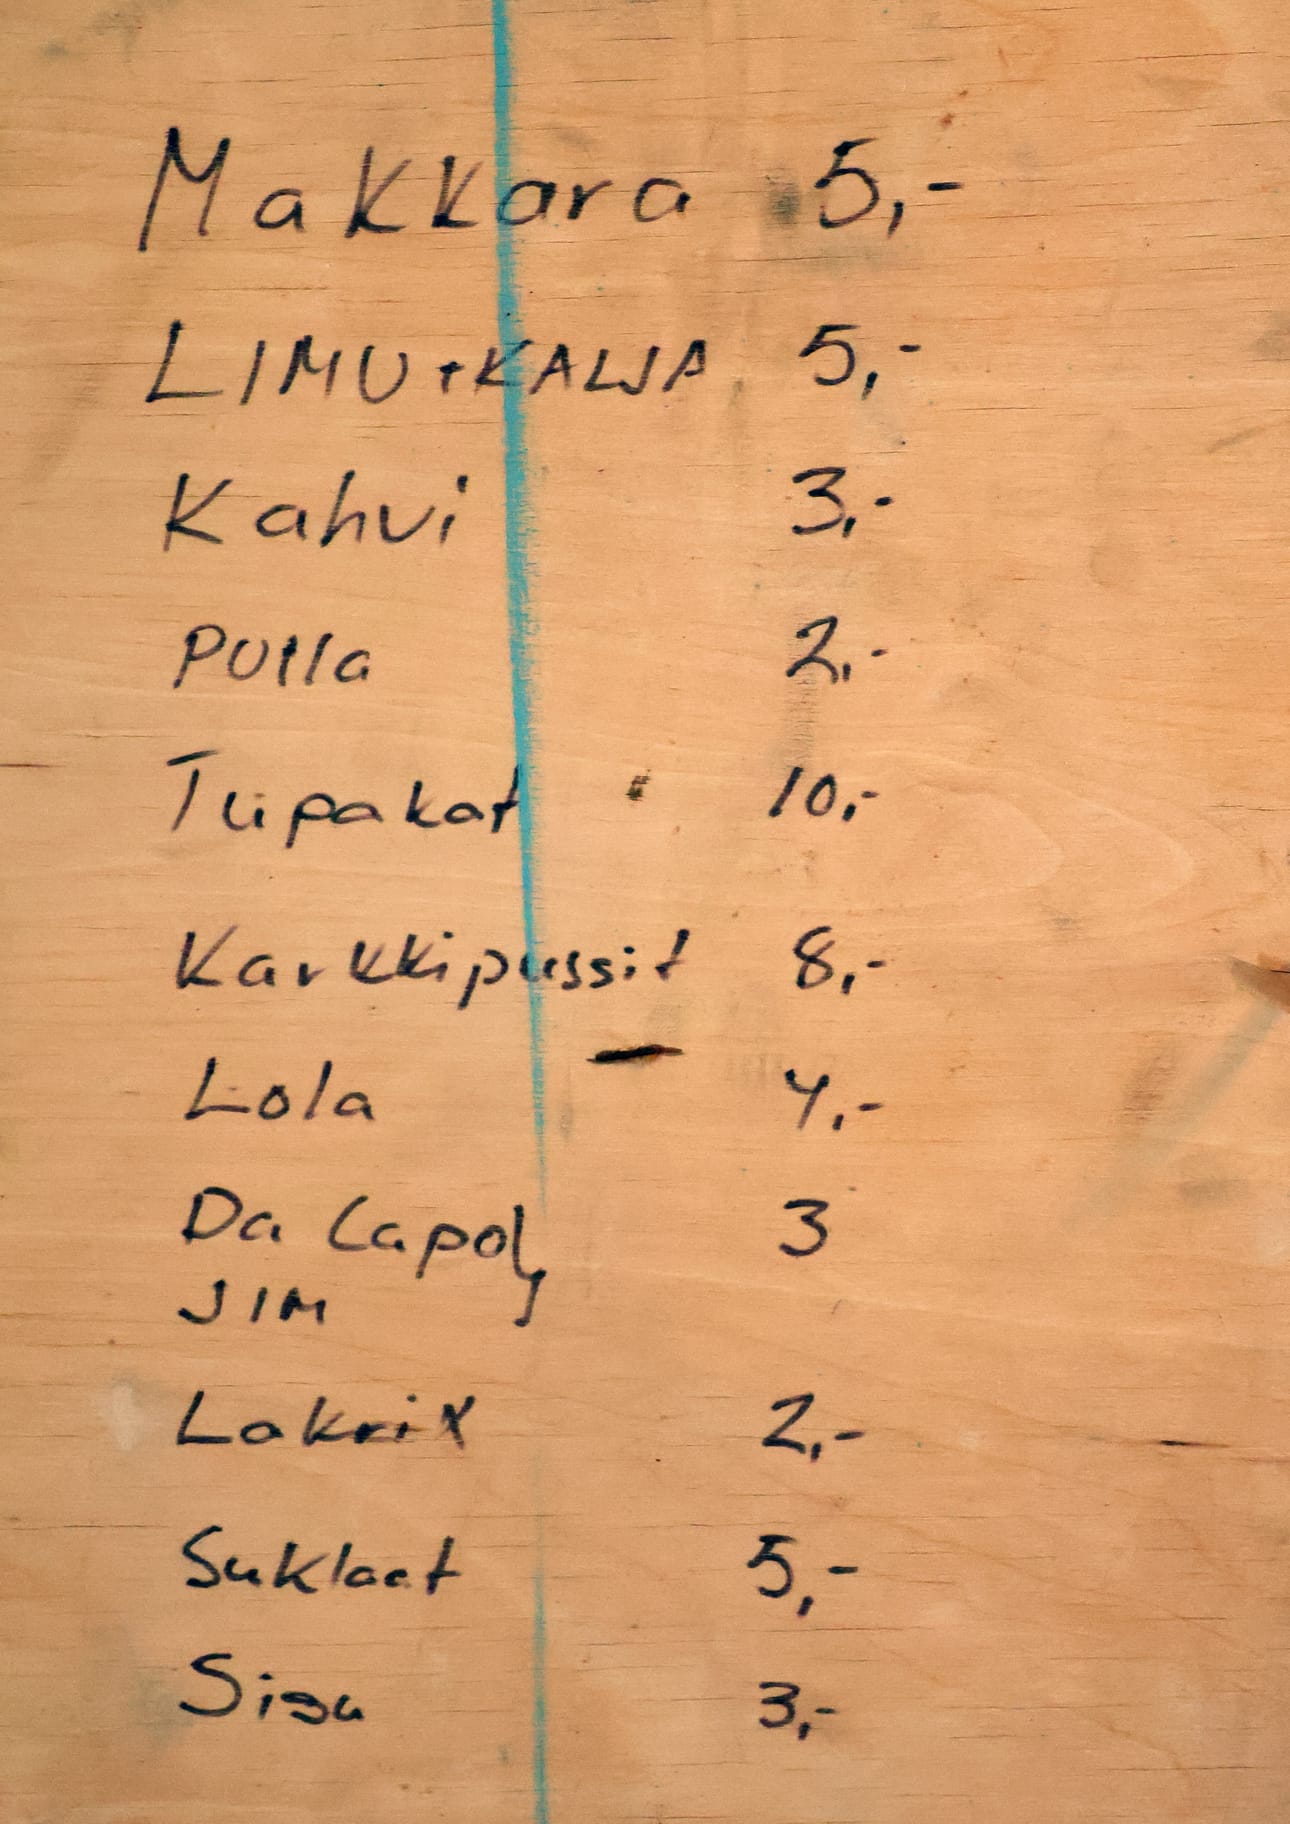 Makkara 5,-
LIMU + KALJA 5,-
Kahvi 3,-
Pulla 2,-
Tupakat 10,-
Karkkipussit 8,-
Lola 4,-
Da Capoly 3
JIM
Lakrix 2,-
Suklaat 5,-
Sisu 3,-